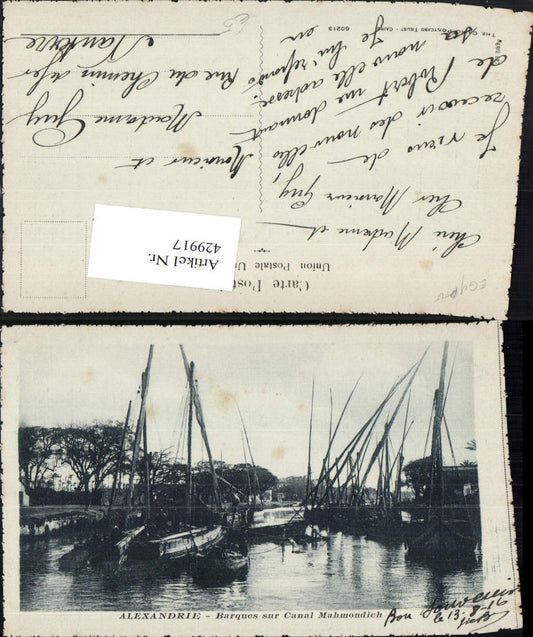 Carte Post
Union Postale Un
Artikel Nr.
429917
Chère Madame et
Cher Monsieur Guy,
Je viens de
recevoir des nouvelles
de Robert me donnant
nouvelle adresse.
Je lui réponds en
Monsieur et
Madame Guy
Rue du Chemin de fer
Nanterre
THE POSTCARD TRUST - CAIRO
60213
EGYPTE
ALEXANDRIE - Barques sur Canal Mahmondieh
Bon Souvenir
le 13-8-16